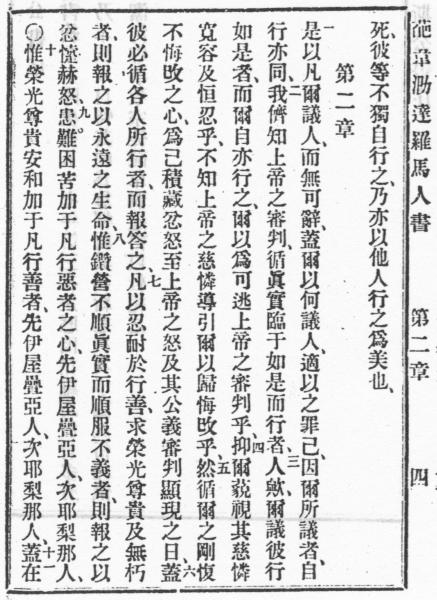 葩韋泐達羅馬人書 第二章 四
死彼等不獨自行之乃亦以他人行之爲美也、
第二章
一是以凡爾議人而無可辭蓋爾以何議人適以之罪己、因爾所議者自
行亦同、二我儕知上帝之審判、循眞實臨于如是而行者、三人歟、爾議彼行
如是者、而爾自亦行之、爾以爲可逃上帝之審判乎、四抑爾藐視其慈憐
寬容及恒忍乎、不知上帝之慈憐導引爾以歸悔改乎、五然循爾之剛愎
不悔改之心、爲己積藏忿怒至上帝之怒及其公義審判顯現之日、六蓋
彼必循各人所行者、而報答之、七凡以忍耐於行善、求榮光尊貴及無朽
者、則報之以永遠之生命、八惟鑽營不順眞實而順服不義者、則報之以
忿懥赫怒、九患難困苦加于凡行惡者之心、先伊屋疊亞人、次耶梨那人、
〇十惟榮光尊貴安和加于凡行善者、先伊屋疊亞人、次耶梨那人、十一蓋在